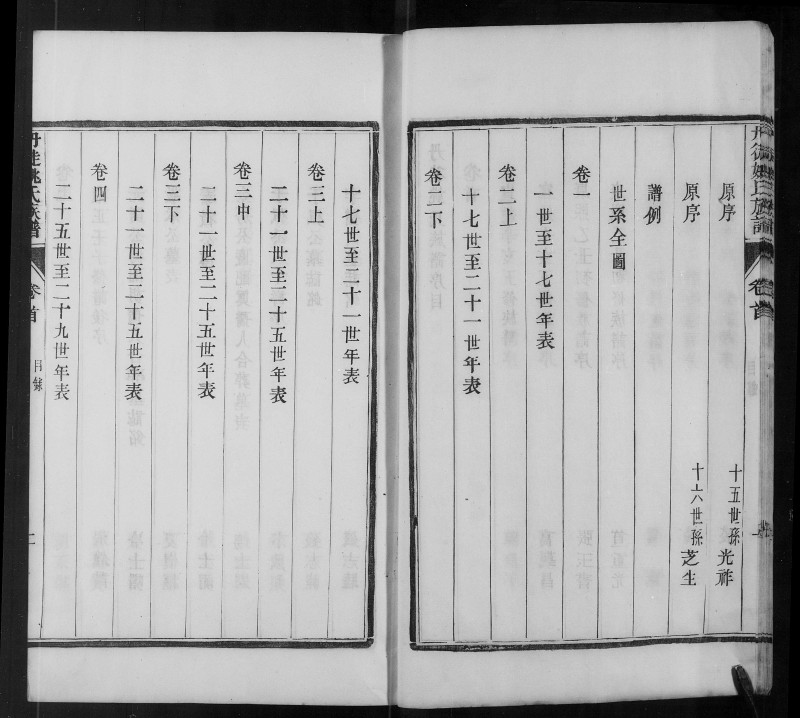 丹徒姚氏族譜 卷首 目錄
原序 十五世孫光祚
原序 十六世孫芝生
譜例
世系全圖
卷一
一世至十七世年表
卷二上
十七世至二十一世年表
卷二下
十七世至二十一世年表
卷三上
二十一世至二十五世年表
卷三中
二十一世至二十五世年表
卷三下
二十一世至二十五世年表
卷四
二十五世至二十九世年表
丹徒姚氏族譜 卷首 目錄 二